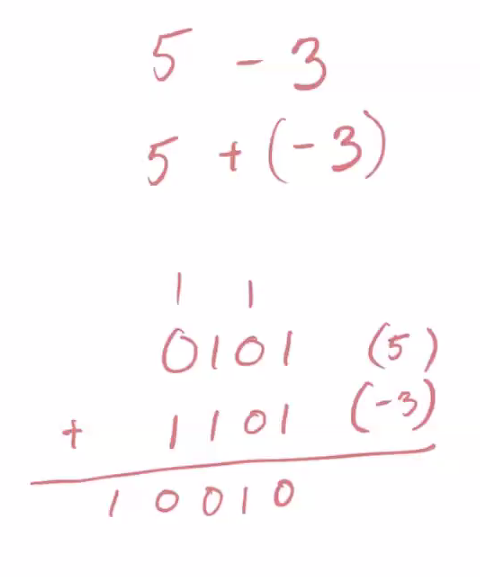 5 - 3
5 + (-3)
1 1
0101 (5)
+ 1101 (-3)
10010